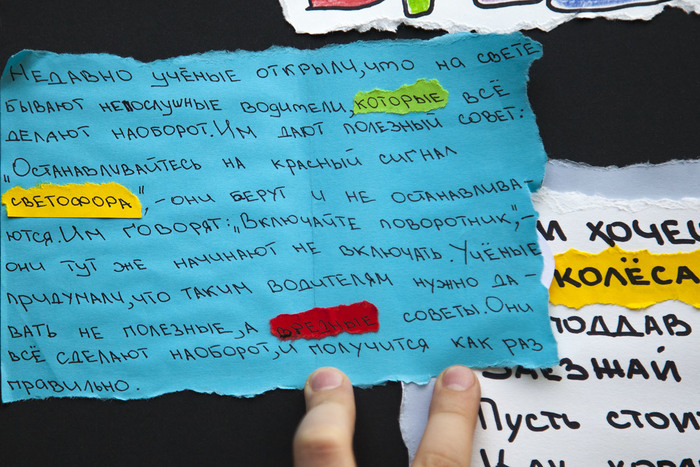 Недавно учёные открыли, что на свете
бывают непослушные водители, которые всё
делают наоборот. Им дают полезный совет:
„Останавливайтесь на красный сигнал
светофора", – они берут и не останавлива-
ются. Им говорят: „Включайте поворотник", –
они тут же начинают не включать. Учёные
придумали, что таким водителям нужно да-
вать не полезные, а вредные советы. Они
всё сделают наоборот, и получится как раз
правильно.
и хочеш
колёса
поддав
заезжай
Пусть стоит